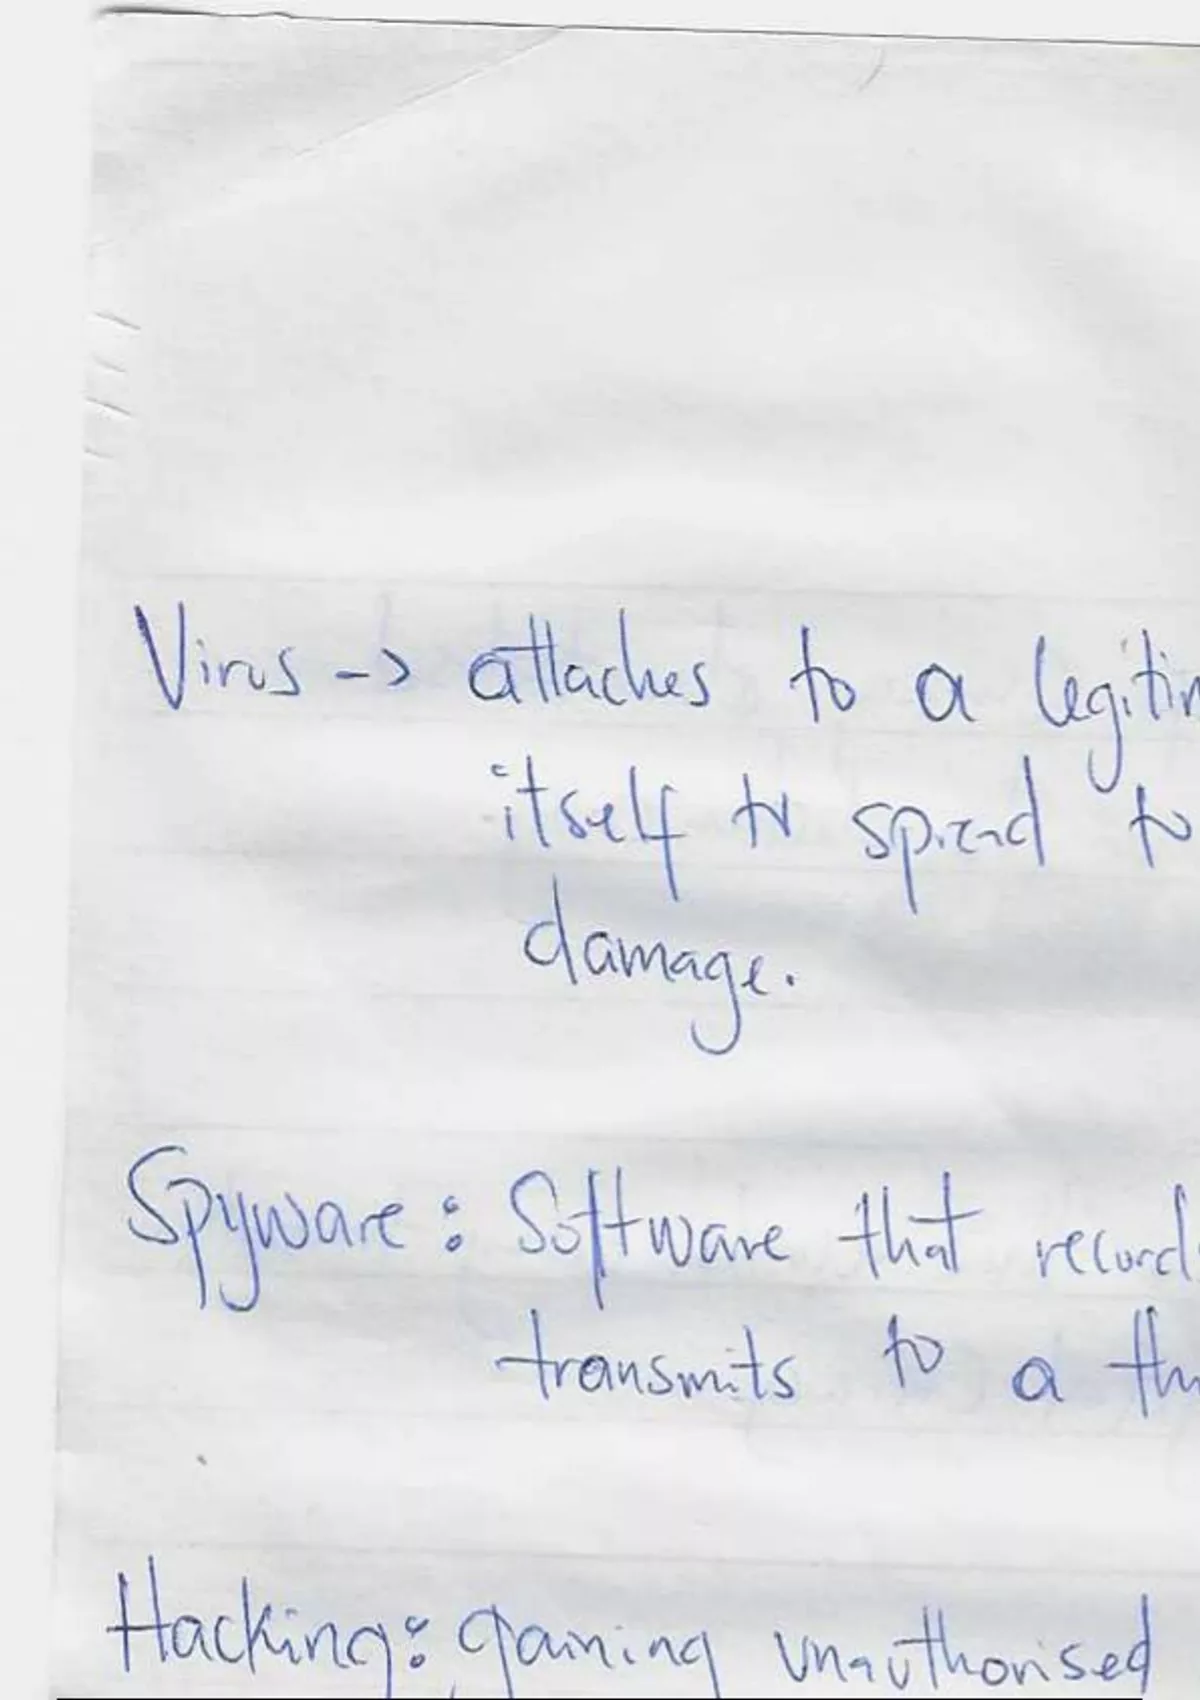 Virus -> attaches to a legitim
itself to spread to
damage.
Spyware: Software that records
transmits to a thi
Hacking: gaining unauthorised